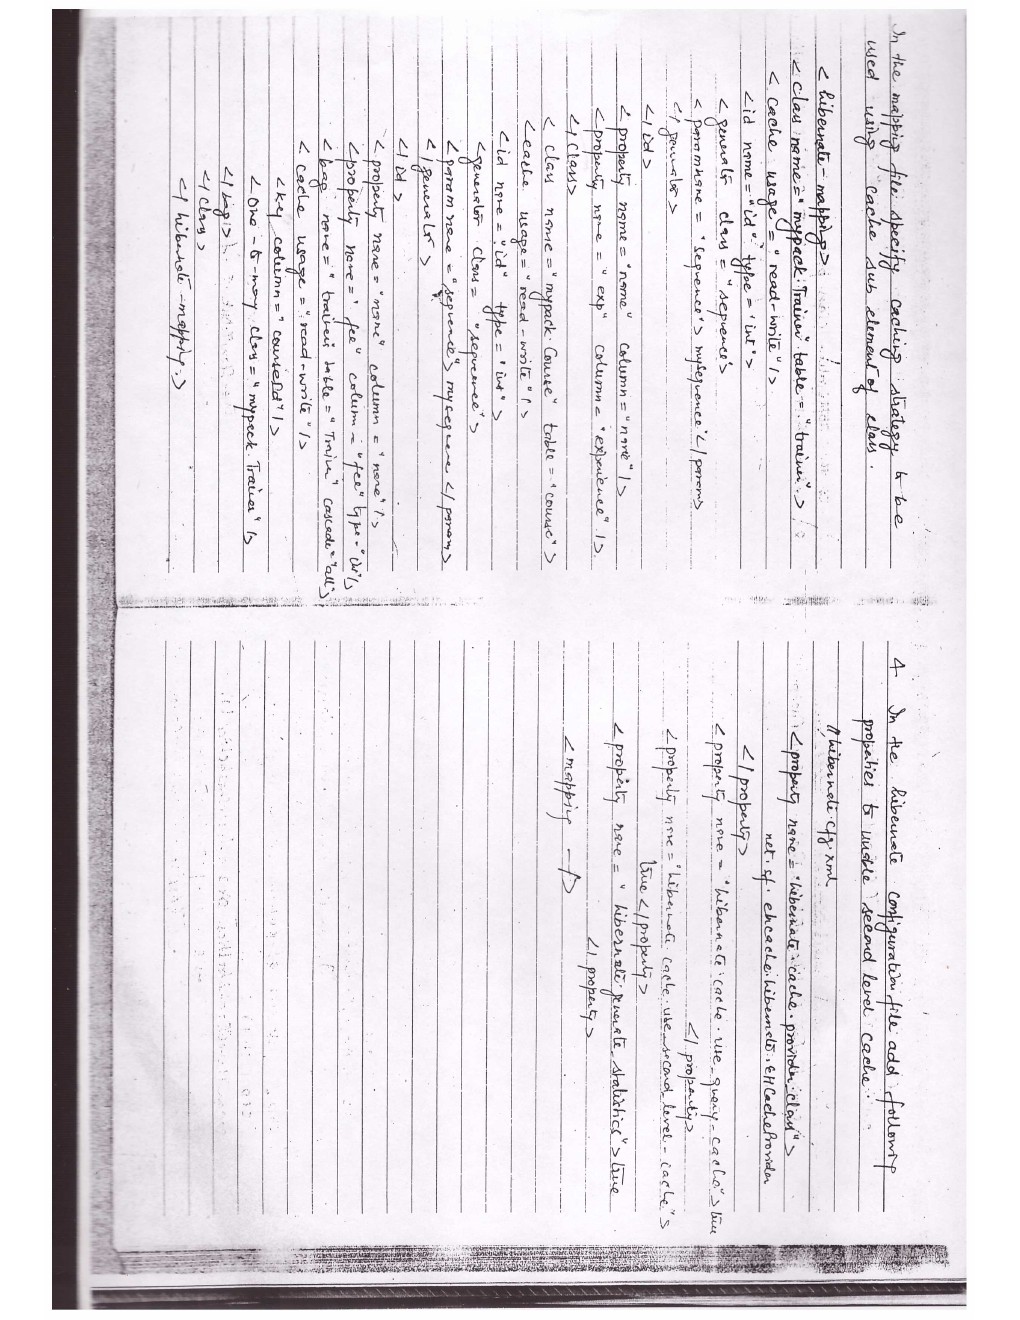 In the mapping file specify caching strategy to be
used using cache sub element of class.
< hibernate-mapping>
< class name="mypack.Trainer" table="trainer">
< cache usage="read-write"/>
<id name="id" type="int">
<generator class="sequence">
<param name="sequence">mysequence</param>
</generator>
</id>
<property name="name" column="name"/>
<property name="exp" column="experience"/>
</class>
< class name="mypack.Course" table="course">
<cache usage="read-write"/>
<id name="id" type="int">
<generator class="sequence">
<param name="sequence">mysequence</param>
</generator>
</id>
<property name="name" column="name"/>
<property name="fee" column="fee" type="int"/>
<bag name="trainers table="Trainer" cascade="all>
<cache usage="read-write"/>
<key column="courseId"/>
<one-to-many class="mypack.Trainer"/>
</bag>
</class>
</hibernate-mapping>
4 In the hibernate configuration file add following
properties to unable second level cache.
//hibernate.cfg.xml
<property name="hibernate.cache.provider.class">
net.sf.ehcache.hibernate.EHCacheProvider
</property>
<property name="hibernate.cache.use_query_cache">true
</property>
<property name="hibernate.cache.use_second_level_cache">
true</property>
<property name="hibernate.generate_statistics">true
</property>
<mapping —/>